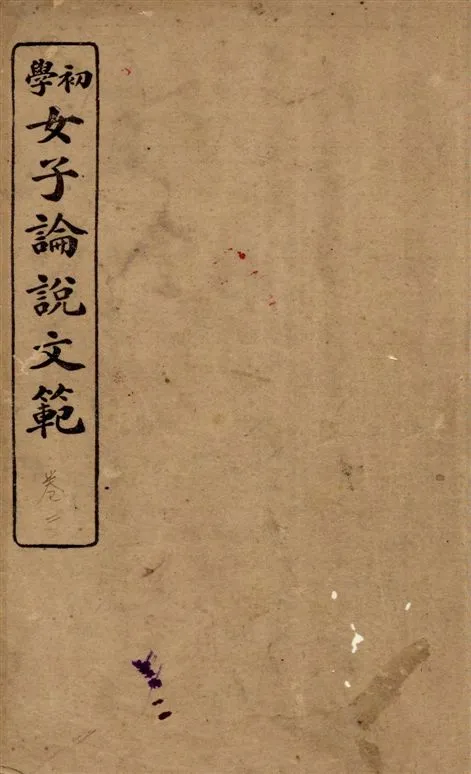 初學
女子論說文範
卷二